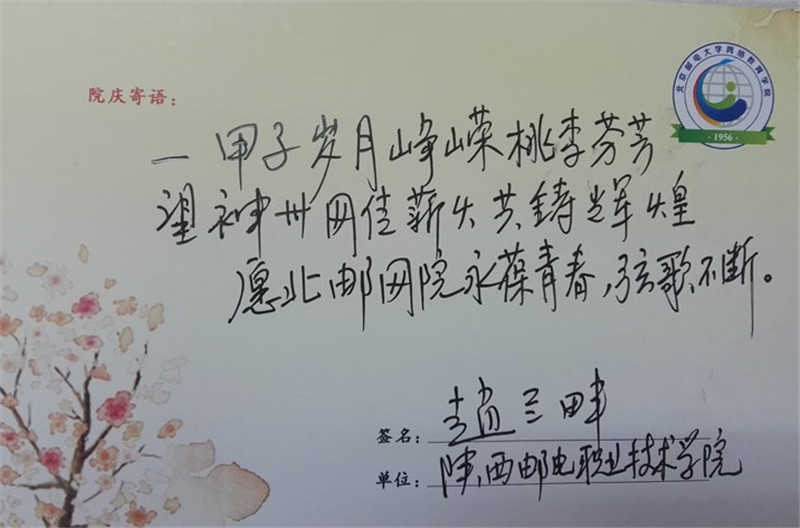 北京邮电大学网络教育学院
· 1956 ·
院庆寄语：
一甲子岁月峥嵘桃李芬芳
望神州网传薪火共铸辉煌
愿北邮网院永葆青春,弦歌不断。
签名：赵三畔
单位：陕西邮电职业技术学院